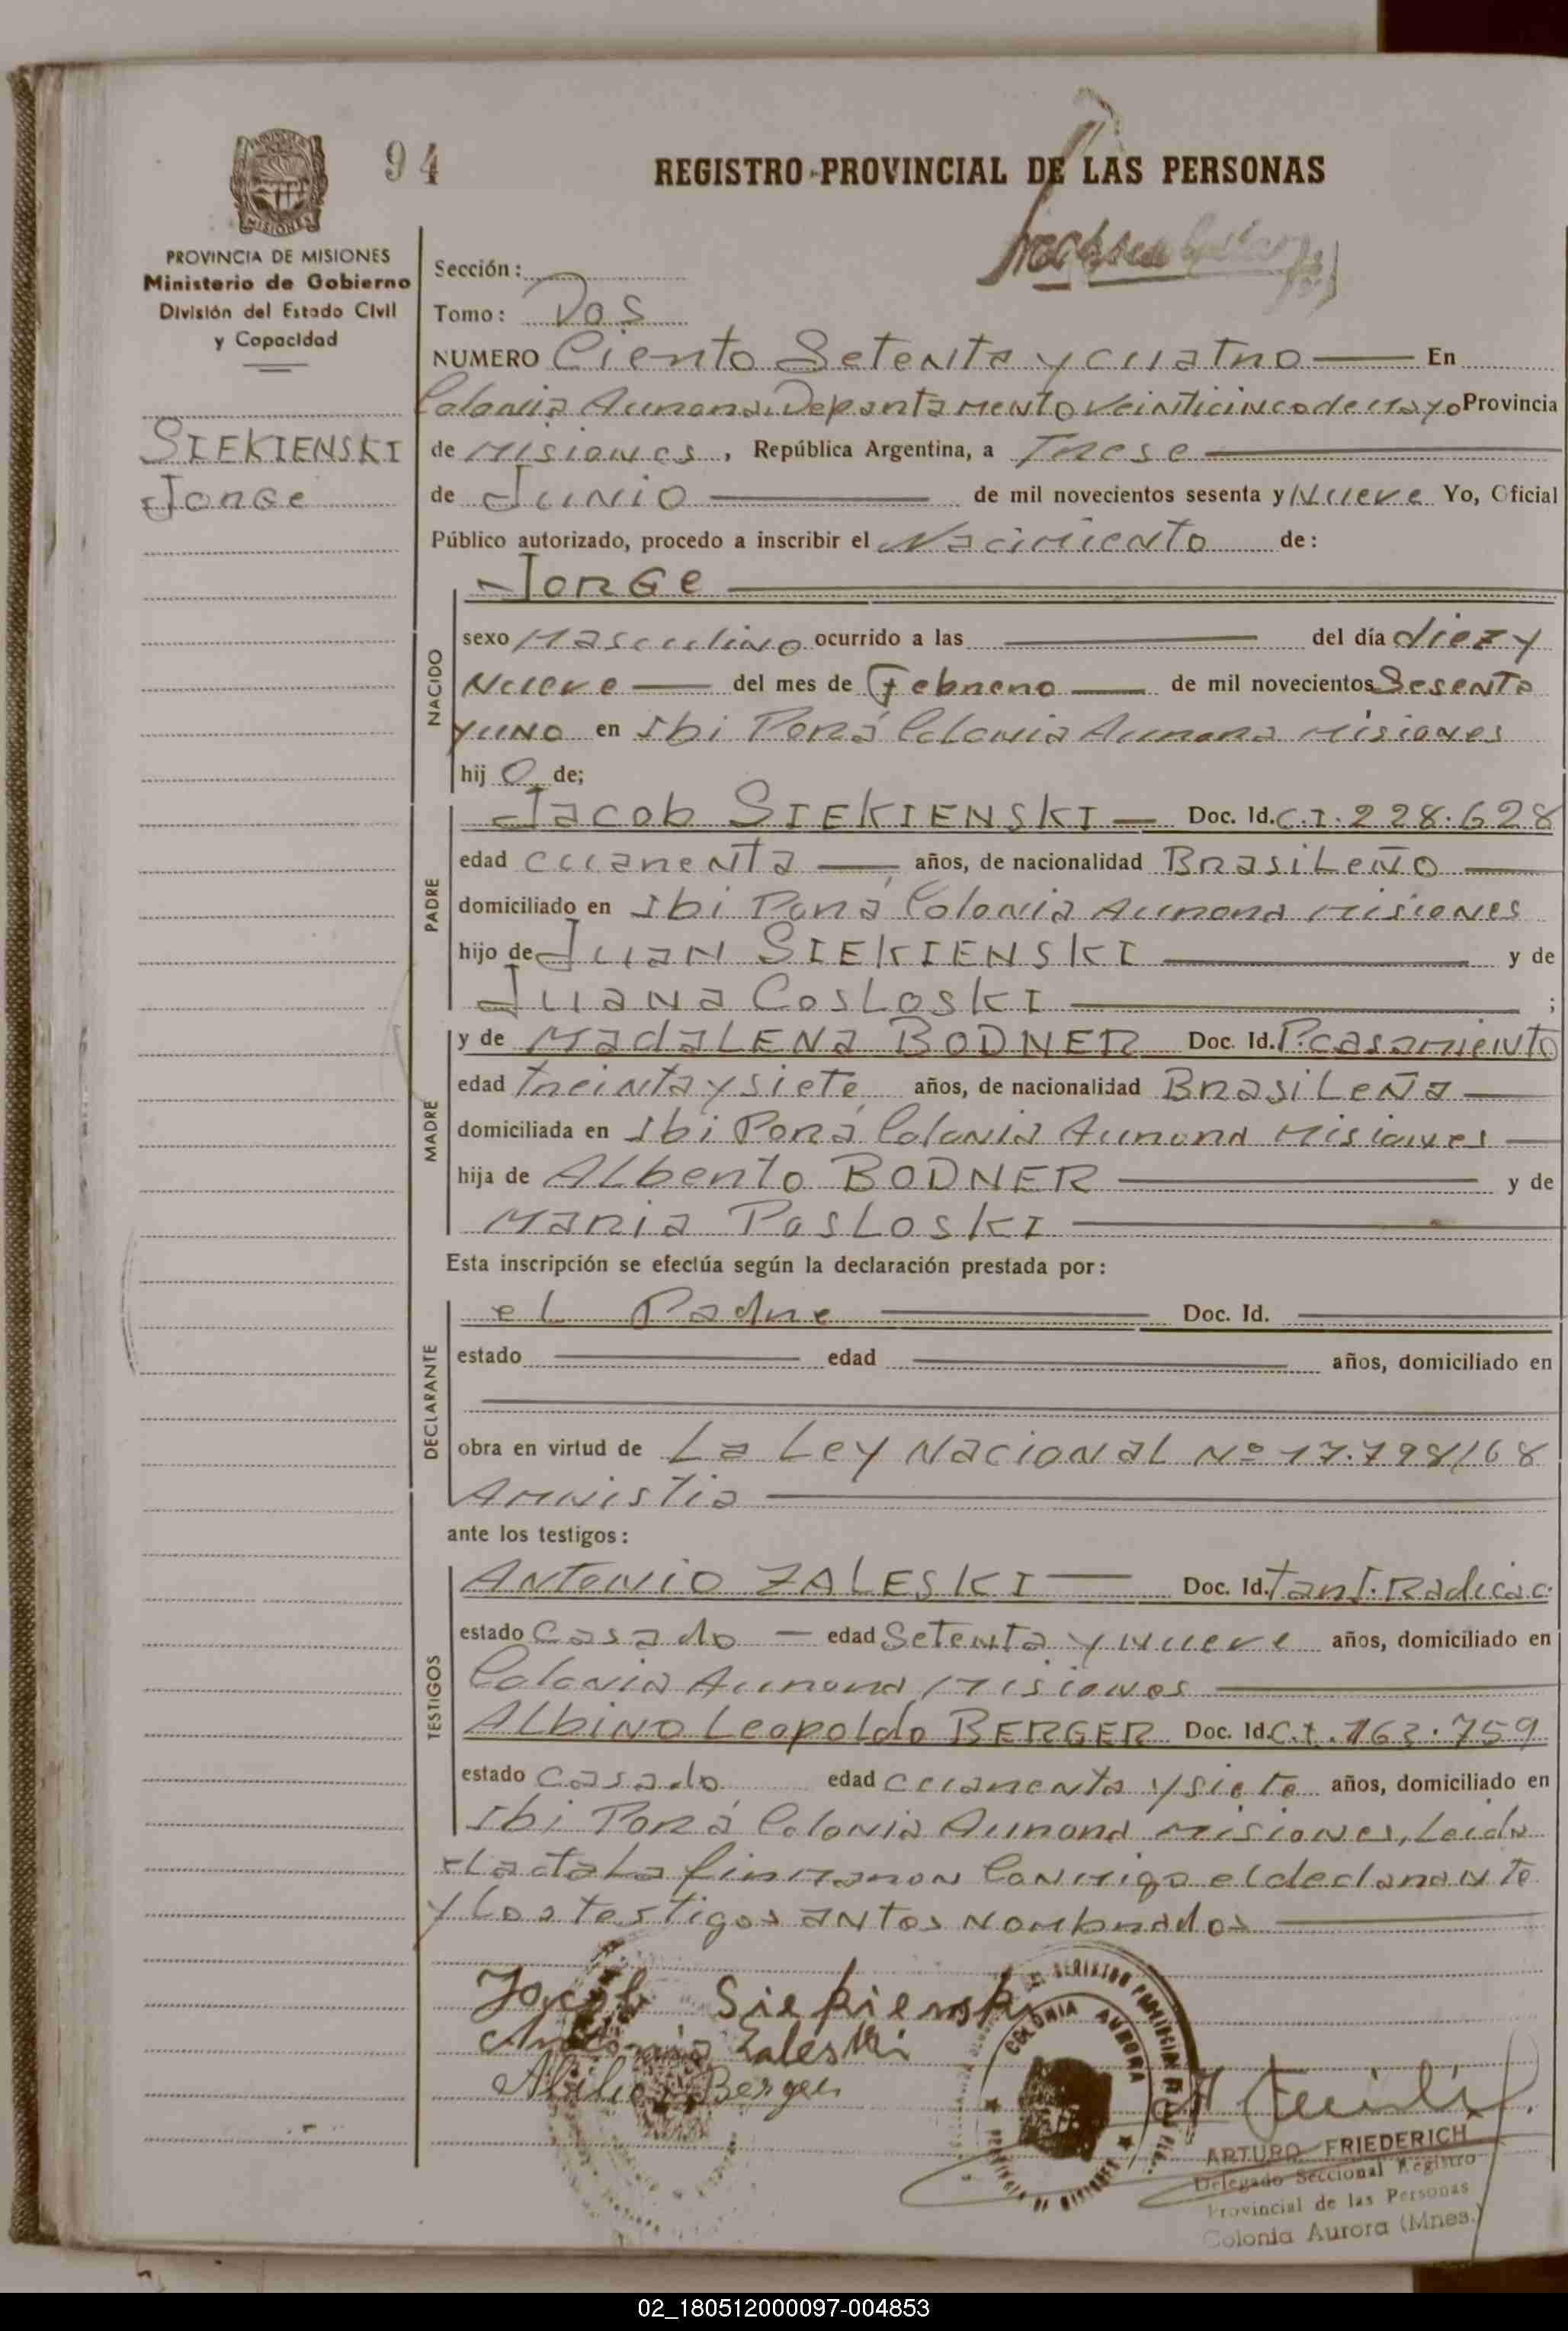 94
REGISTRO PROVINCIAL DE LAS PERSONAS
MISIONES
PROVINCIA DE MISIONES
Ministerio de Gobierno
División del Estado Civil
y Capacidad
SIEKIENSKI
Jorge
Sección:
Tomo: Dos
NUMERO Ciento Setenta y cuatro En
Colonia Aurora, Departamento Veinticinco de Mayo Provincia
de Misiones, República Argentina, a Trese
de Junio de mil novecientos sesenta y Nueve Yo, Oficial
Público autorizado, procedo a inscribir el Nacimiento de:
NACIDO
Jorge
sexo Masculino ocurrido a las del día diez y
Nueve del mes de Febrero de mil novecientos Sesenta
y uno en Ibi Porá Colonia Aurora Misiones
hij o de;
PADRE
Jacob SIEKIENSKI Doc. Id. C.I. 228.628
edad cuarenta años, de nacionalidad Brasileño
domiciliado en Ibi Porá Colonia Aurora Misiones
hijo de Juan SIEKIENSKI y de
Juana Cosloski ;
MADRE
y de Madalena BODNER Doc. Id. P. casamiento
edad treinta y siete años, de nacionalidad Brasileña
domiciliada en Ibi Porá Colonia Aurora Misiones
hija de Alberto BODNER y de
Maria Posloski
Esta inscripción se efectúa según la declaración prestada por:
DECLARANTE
el Padre Doc. Id.
estado edad años, domiciliado en
obra en virtud de La Ley Nacional Nº 17.798/68
Amnistia
ante los testigos:
TESTIGOS
Antonio ZALESKI Doc. Id. Radicac.
estado casado edad Setenta y nueve años, domiciliado en
Colonia Aurora Misiones
Albino Leopoldo BERGER Doc. Id. C.I. 163.759
estado casado edad cuarenta y siete años, domiciliado en
Ibi Porá Colonia Aurora Misiones, Leida
el acta La firmaron Conmigo el declarante
y Los testigos antes nombrados
Jacob Siekienski
Antonio Zaleski
Berger
COLONIA AURORA
ARTURO FRIEDERICH
Delegado Seccional Registro
Provincial de las Personas
Colonia Aurora (Mnes.)
02_180512000097-004853